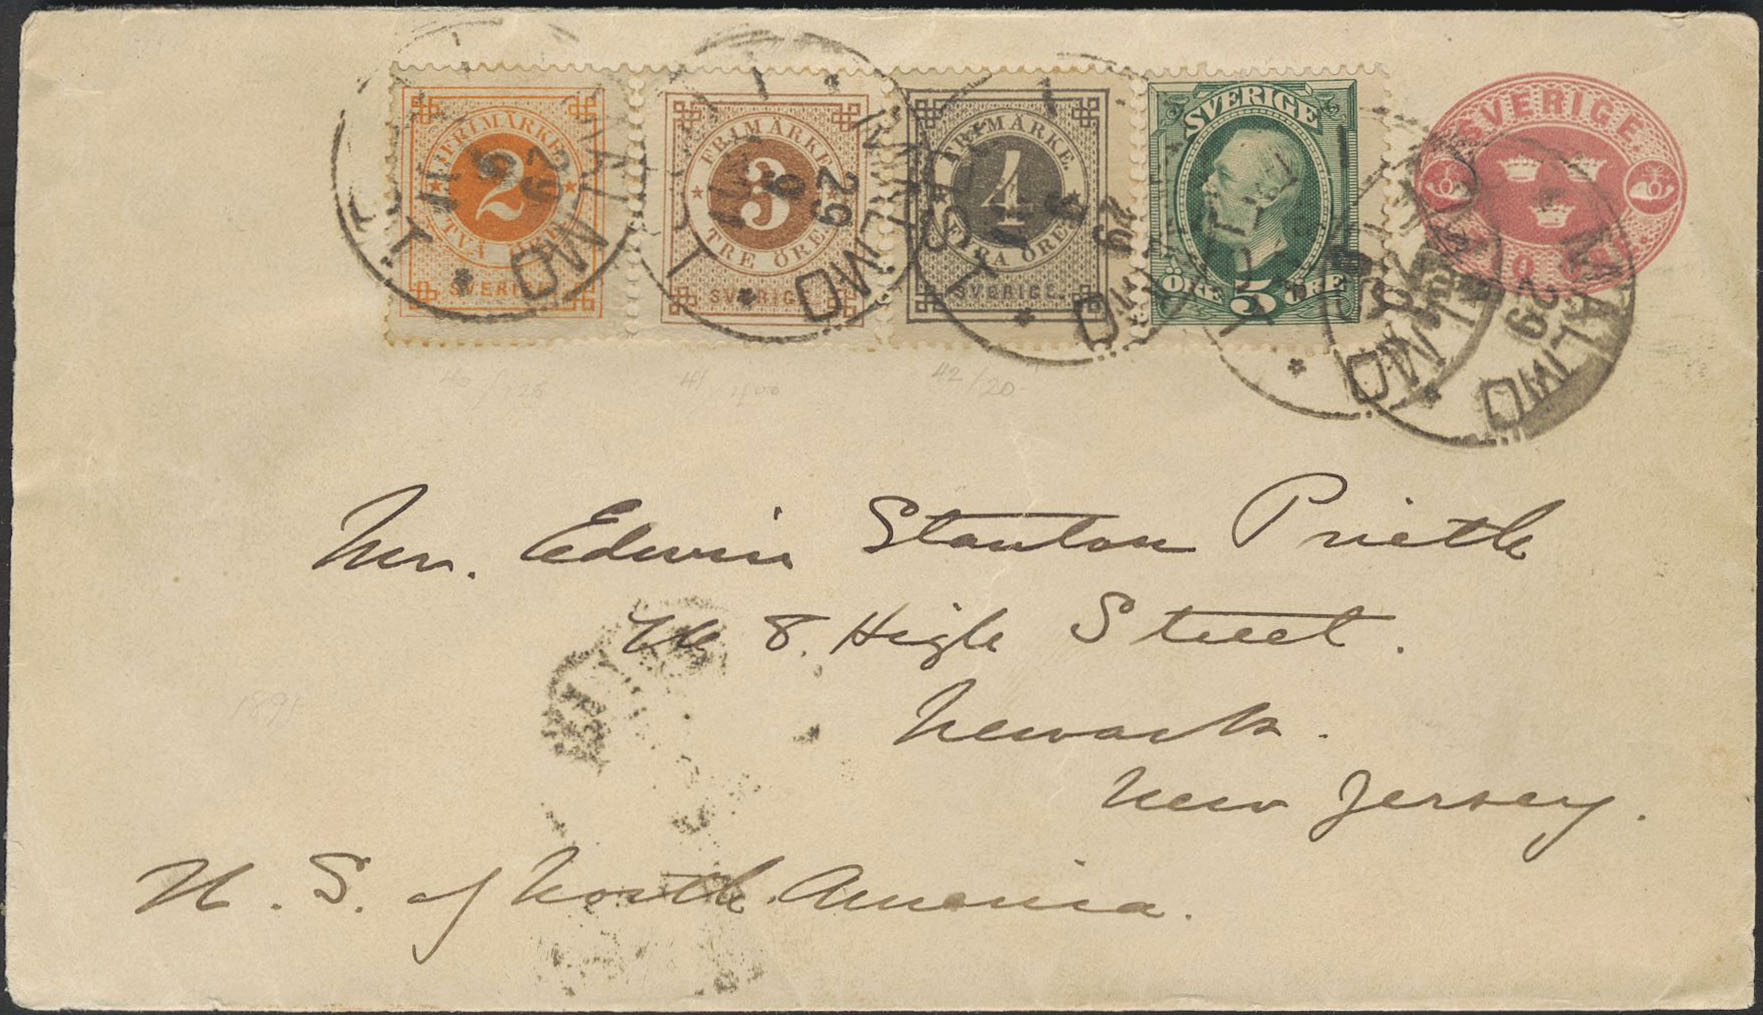 FRIMÄRKE
2
TVÅ ÖRE
SVERIGE.
FRIMÄRKE
3
TRE ÖRE
SVERIGE.
FRIMÄRKE
4
FYRA ÖRE
SVERIGE.
SVERIGE
ÖRE 5 ÖRE
SVERIGE
MALMÖ
29
40/125
41
42/20
Mr. Edwin Stanton Prieth
8. High Street.
Newark.
New Jersey.
1891
U. S. of North America.